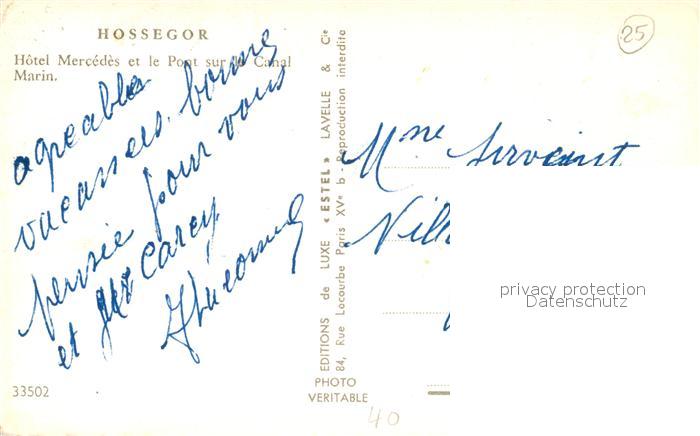 HOSSEGOR
Hôtel Mercédès et le Pont sur le Canal
Marin.
agreables
vacances. bonne
pensée pour vous
et Carcy
33502
EDITIONS de LUXE « ESTEL » LAVELLE & Cie
84, Rue Locourbe Paris XVe b - Reproduction interdite
PHOTO
VERITABLE
25
Mme
privacy protection
Datenschutz
40